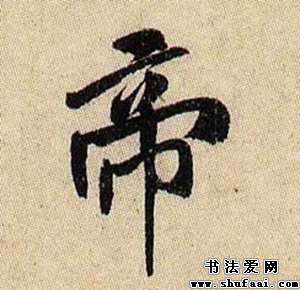 帝
书法爱网
www.shufaai.com